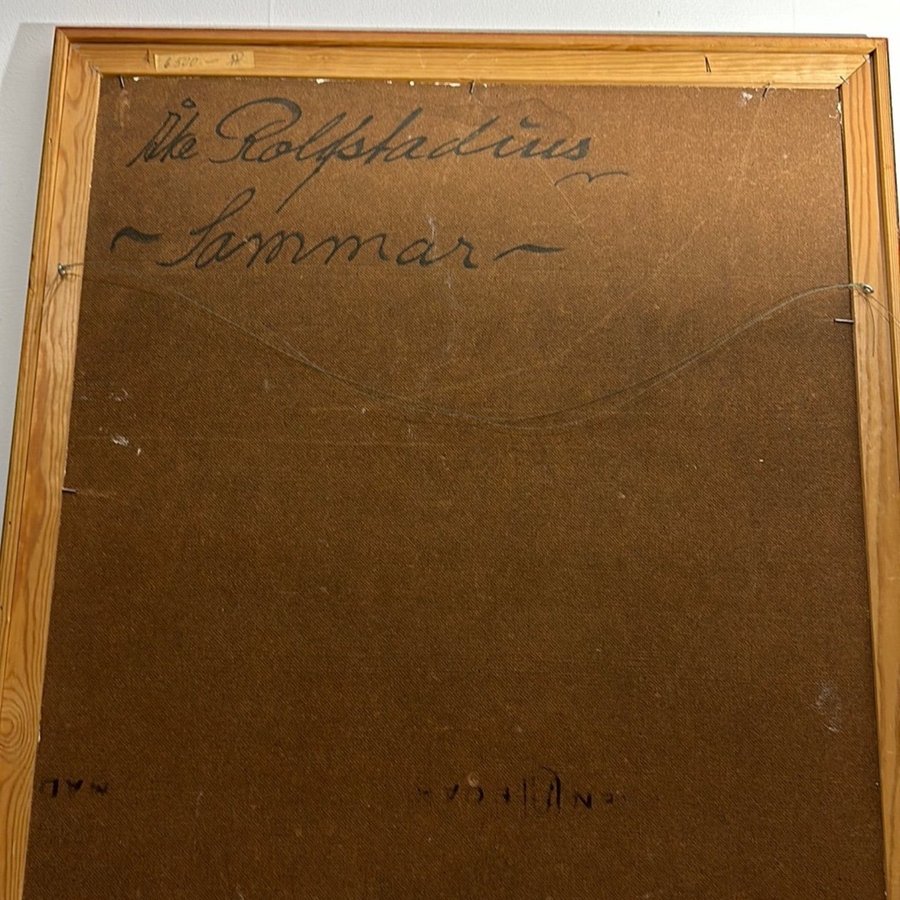 6500:-
Åke Rolfstadius
~ Sammar ~